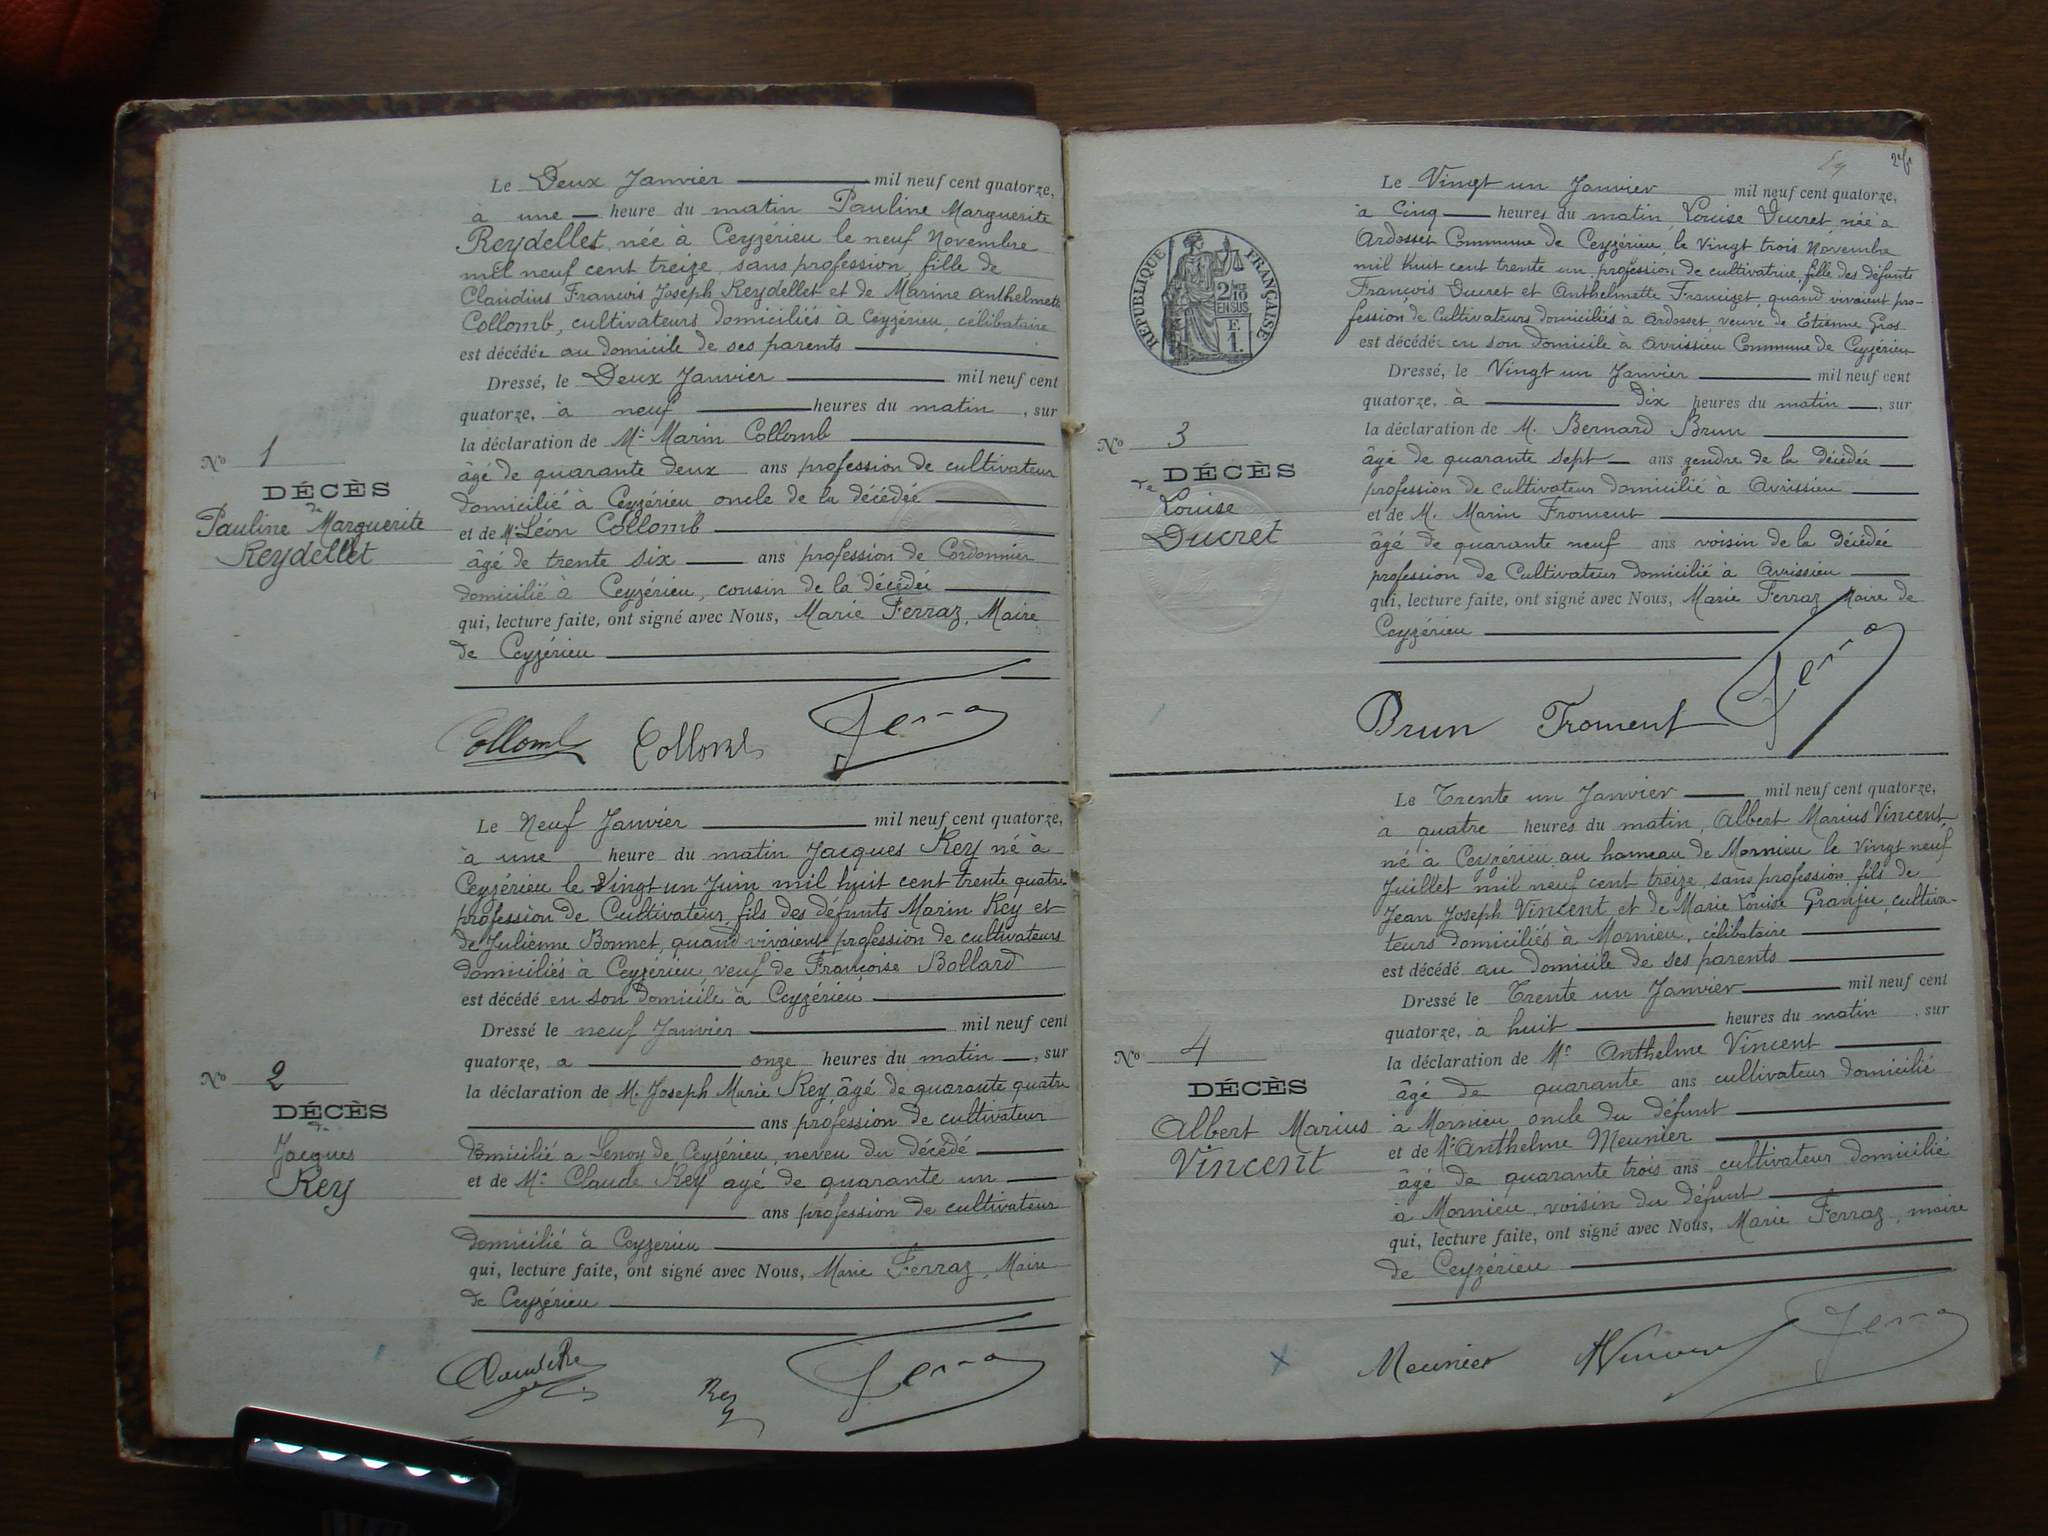 Le Deux Janvier mil neuf cent quatorze,
à une heure du matin Pauline Marguerite
Reydellet, née à Ceyzérieu le neuf Novembre
mil neuf cent treize, sans profession, fille de
Claudius François Joseph Reydellet et de Marine Anthelmette
Collomb, cultivateurs domiciliés à Ceyzérieu, célibataire
est décédée au domicile de ses parents
Dressé, le Deux Janvier mil neuf cent
quatorze, à neuf heures du matin, sur
la déclaration de Mr Marin Collomb
âgé de quarante deux ans profession de cultivateur
domicilié à Ceyzérieu oncle de la décédée
et de Mr Léon Collomb
âgé de trente six ans profession de Cordonnier
domicilié à Ceyzérieu, cousin de la décédée
qui, lecture faite, ont signé avec Nous, Marie Ferraz, Maire
de Ceyzérieu
No 1
DÉCÈS
de
Pauline Marguerite
Reydellet
Collomb Collomb Ferra
Le Neuf Janvier mil neuf cent quatorze,
à une heure du matin Jacques Rey né à
Ceyzérieu le Vingt un Juin mil huit cent trente quatre
profession de Cultivateur, fils des défunts Marin Rey et
de Julienne Bonnet, quand vivaient profession de cultivateurs
domiciliés à Ceyzérieu, veuf de Françoise Bollard
est décédé en son domicile à Ceyzérieu
Dressé le neuf Janvier mil neuf cent
quatorze, a onze heures du matin, sur
la déclaration de M. Joseph Marie Rey, âgé de quarante quatre
ans profession de cultivateur
domicilié a de Ceyzérieu, neveu du décédé
et de Mr Claude Rey agé de quarante un
ans profession de cultivateur
domicilié à Ceyzerieu
qui, lecture faite, ont signé avec Nous, Marie Ferraz, Maire
de Ceyzérieu
No 2
DÉCÈS
de
Jacques
Rey
Rey Ferra
Le Vingt un Janvier mil neuf cent quatorze,
à Cinq heures du matin Louise Ducret, née à
Ardosset Commune de Ceyzérieu, le Vingt trois Novembre
mil huit cent trente un, profession de cultivatrice, fille des défunts
François Ducret et Anthelmette Franciset, quand vivaient pro-
fession de Cultivateurs domiciliés à Ardosset veuve de Etienne Gros
est décédée en son domicile à Avrissieu Commune de Ceyzérieu
Dressé, le Vingt un Janvier mil neuf cent
quatorze, à dix heures du matin, sur
la déclaration de M. Bernard Brun
âgé de quarante sept ans gendre de la décédée
profession de cultivateur domicilié à Avrissieu
et de M. Marin Froment
âgé de quarante neuf ans voisin de la décédée
profession de Cultivateur domicilié à Avrissieu
qui, lecture faite, ont signé avec Nous, Marie Ferraz Maire de
Ceyzérieu
RÉPUBLIQUE FRANÇAISE
2/10
EN SUS
F.
1.
No 3
DÉCÈS
de
Louise
Ducret
Brun Froment Ferra
Le Trente un Janvier mil neuf cent quatorze,
à quatre heures du matin, Albert Marius Vincent,
né à Ceyzérieu au hameau de Mornieu le Vingt neuf
Juillet mil neuf cent treize, sans profession, fils de
Jean Joseph Vincent et de Marie Louise Granju, cultiva-
teurs domiciliés à Mornieu, célibataire
est décédé au domicile de ses parents
Dressé le Trente un Janvier mil neuf cent
quatorze, à huit heures du matin, sur
la déclaration de Mr Anthelme Vincent
âgé de quarante ans cultivateur domicilié
à Mornieu oncle du défunt
et de Mr Anthelme Meunier
âgé de quarante trois ans cultivateur domicilié
à Mornieu, voisin du défunt
qui, lecture faite, ont signé avec Nous, Marie Ferraz, maire
de Ceyzérieu
No 4
DÉCÈS
Albert Marius
Vincent
Meunier AVincent Ferra